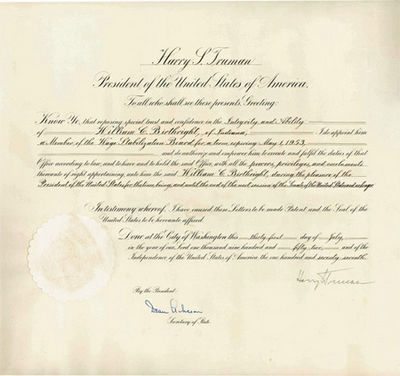 Harry S. Truman
President of the United States of America.
To all who shall see these presents, Greeting:
Know Ye, that reposing special trust and confidence in the Integrity and Ability
of William C. Birthright, of Indiana, I do appoint him
a Member of the Wage Stabilization Board for a term expiring May 1, 1953,
and do authorize and empower him to execute and fulfil the duties of that
Office according to law, and to have and to hold the said Office, with all the powers, privileges, and emoluments
thereunto of right appertaining, unto him the said William C. Birthright, during the pleasure of the
President of the United States for the time being, and until the end of the next session of the Senate of the United States and no longer.
In testimony whereof, I have caused these Letters to be made Patent and the Seal of the
United States to be hereunto affixed.
Done at the City of Washington this thirty-first day of July,
in the year of our Lord one thousand nine hundred and fifty-two, and of the
Independence of the United States of America the one hundred and seventy-seventh.
Harry S Truman
By the President:
Dean Acheson
Secretary of State.